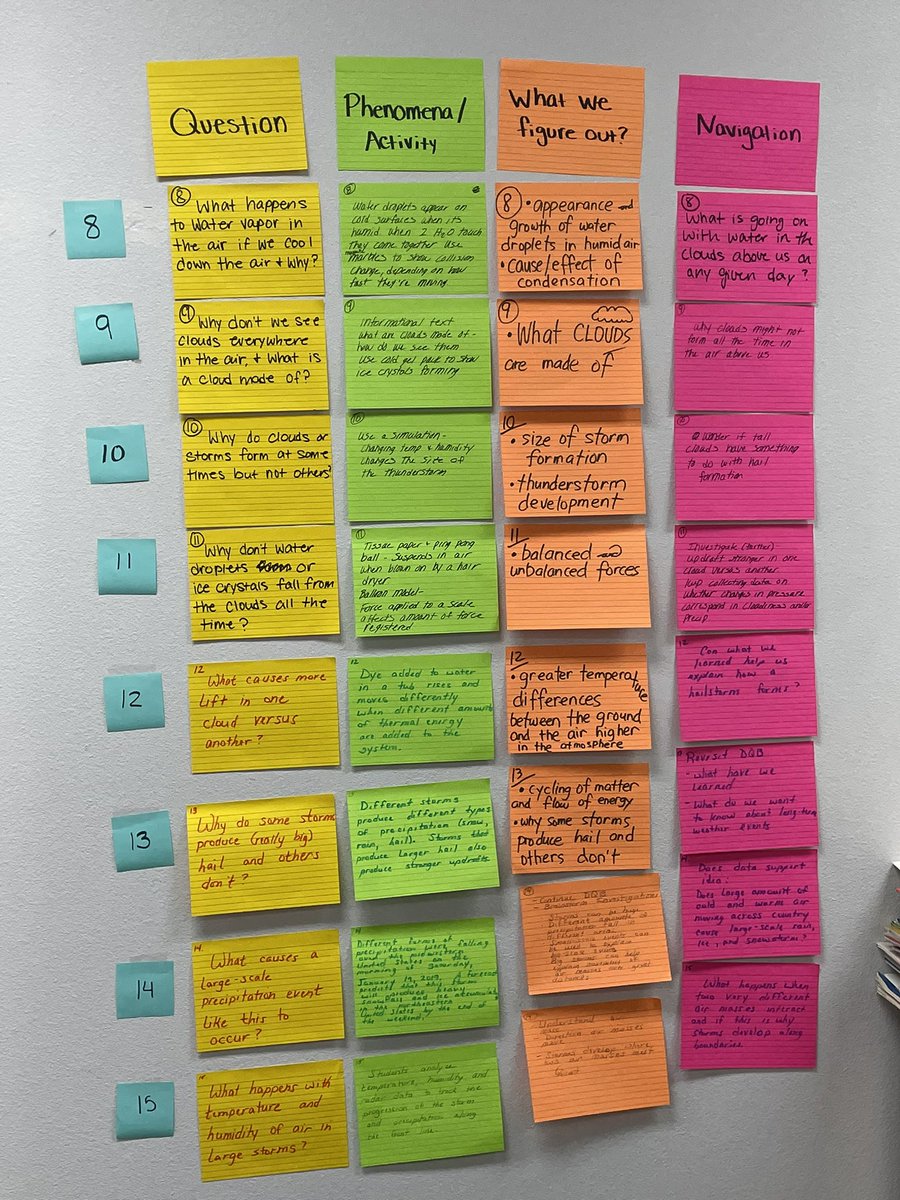 Question
Phenomena/
Activity
What we
figure out?
Navigation
8
⑧ What happens
to water vapor in
the air if we cool
down the air + Why?
⑧
Water droplets appear on
cold surfaces when its
humid when 2 H2O touch
they come together use
marbles to show collision
change, depending on how
fast they're moving
⑧ • appearance and
growth of water
droplets in humid air
• cause/effect of
condensation
⑧
What is going on
with water in the
clouds above us on
any given day?
9
⑨ Why don't we see
clouds everywhere
in the air, + What is
a cloud made of?
⑨
Informational text
what are clouds made of -
how do we see them
Use cold gel pack to show
ice crystals forming
⑨
• What CLOUDS
are made of
⑨
Why clouds might not
form all the time in
the air above us
10
⑩
Why do clouds or
storms form at some
times but not others?
⑩
Use a simulation -
changing temp & humidity
changes the size of
the thunderstorm
10
• size of storm
formation
• thunderstorm
development
⑩
wonder if tall
clouds have something
to do with hail
formation
11
⑪
Why don't water
droplets or
ice crystals fall from
the clouds all the
time?
⑪
Tissue paper + ping pong
ball - suspends in air
when blown on by a hair
dryer
Balloon model -
Force applied to a scale
affects amount of force
registered
11
• balanced and
unbalanced forces
⑪
Investigate (further) -
updraft stronger in one
cloud versus another
keep collecting data on
whether changes in pressure
correspond in cloudiness and/or
precip
12
12
What causes more
lift in one
cloud versus
another?
12
Dye added to water
in a tub rises and
moves differently
when different amounts
of thermal energy
are added to the
system.
12
• greater temperature
differences
between the ground
and the air higher
in the atmosphere
12
Can what we
learned help us
explain how a
hailstorm forms?
13
13
Why do some storms
produce (really big)
hail and others
don't?
Different storms
produce different types
of precipitation (snow,
rain, hail). Storms that
produce larger hail also
produce stronger updrafts
13
• cycling of matter
and flow of energy
• why some storms
produce hail and
others don't
Revisit DQB
- What have we
learned
- What do we want
to know about long-term
weather events
14
14.
What causes a
large-scale
precipitation event
like this to
occur?
Different forms of
precipitation were falling
around the midwestern
United States on the
morning of Saturday,
January 19, 2019. A forecast
predicts that this storm
will produce heavy
snowfall and ice accumulation
in the northeastern
United States by the end of
the weekend.
- Continue DQB
- Brainstorm investigations
Storms can be huge
Different amounts of
precipitation fall
different areas
Does data support
idea:
Does large amount of
cold and warm air
moving across country
cause large-scale rain,
ice, and snowstorms?
15
What happens with
temperature and
humidity of air in
large storms?
Students analyze
temperature, humidity and
radar data to track the
progression of the storm
and precipitation along
the front line.
Understand
direction air masses
move
- Storms develop where
two air masses meet
What happens when
two very different
air masses interact
and if this is why
storms develop along
boundaries.